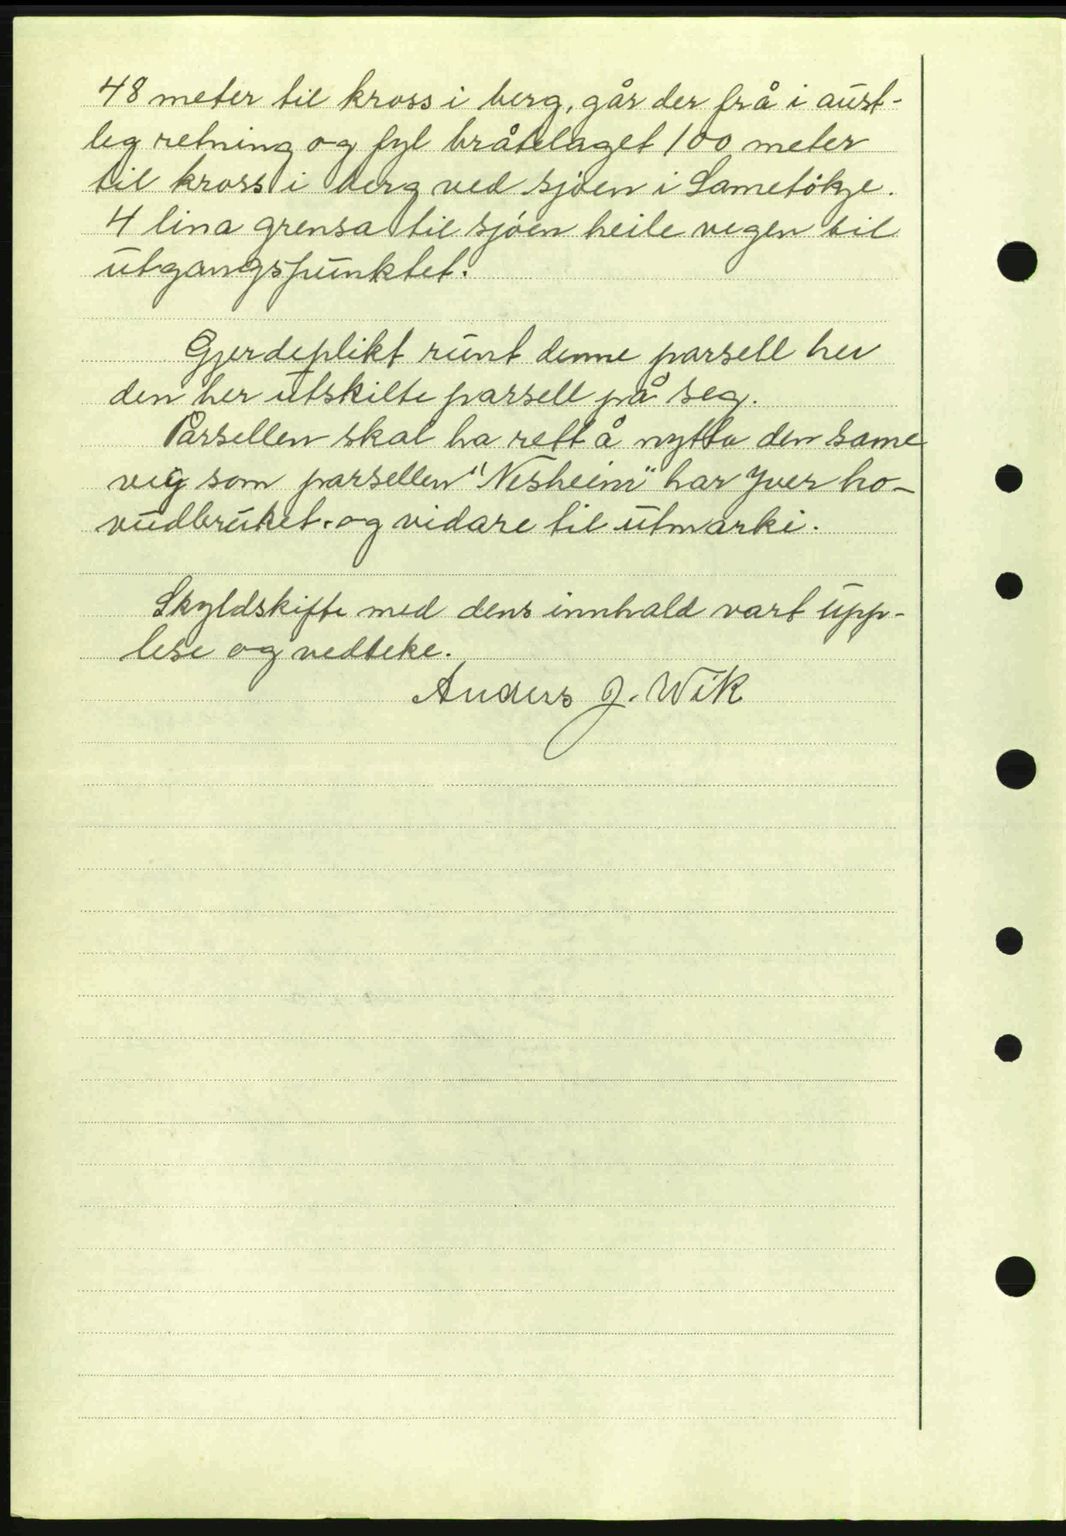 48 meter til kross i berg, går der frå i aust-
leg retning og fyl bråtelaget 100 meter
til kross i berg ved sjøen i
4 lina grensa til sjøen heile vegen til
utgangspunktet.
Gjerdeplikt runt denne parsell hev
den her utskilte parsell på seg.
Parsellen skal ha rett å nytta den same
veg som parsellen "Nesheim" har yver ho-
vudbruket. og vidare til utmarki.
Skyldskifte med dens innhald vart upp-
lese og vedteke.
Anders J. Wik